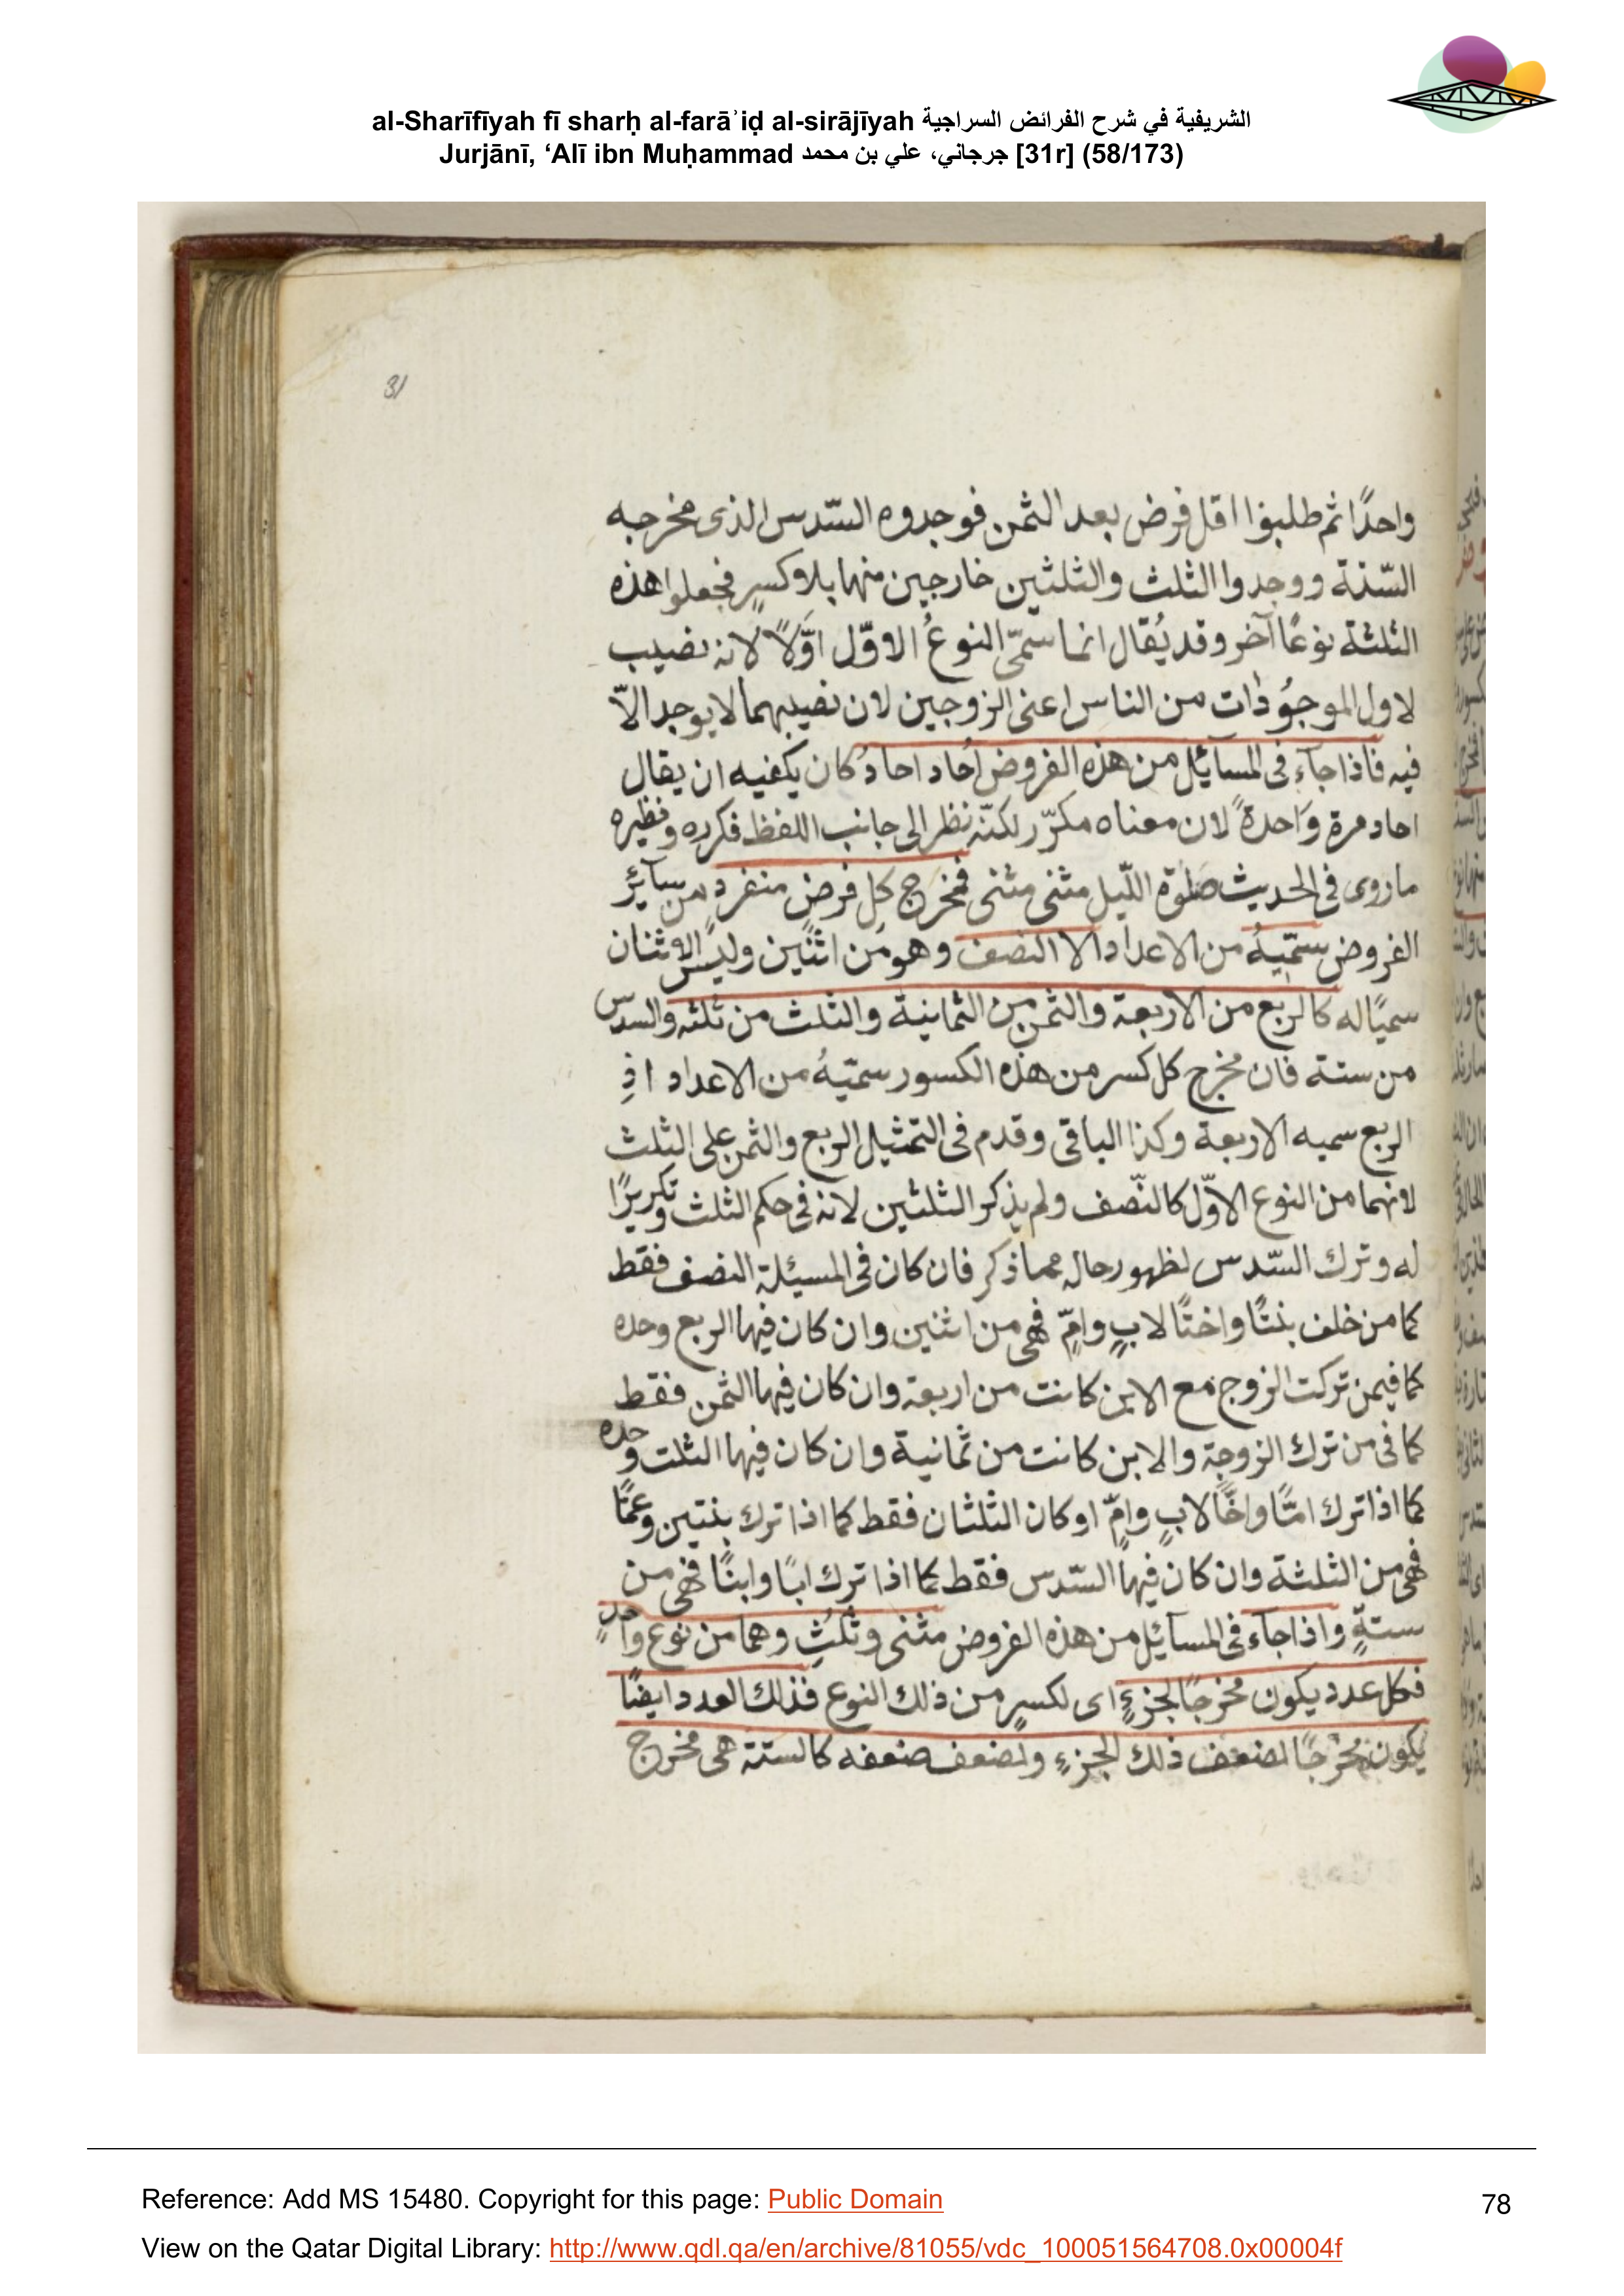 al-Sharīfīyah fī sharḥ al-farāʾiḍ al-sirājīyah الشريفية في شرح الفرائض السراجية
Jurjānī, ‘Alī ibn Muḥammad جرجاني، علي بن محمد [31r] (58/173)
31
واحدًا ثم طلبوا اقل فرض بعد الثمن فوجدوه السّدس الذى مخرجه
السّتة ووجدوا الثلث والثلثين خارجين منها بلا كسرٍ فجعلوا هذه
الثلثة نوعًا آخر وقد يُقال انما سمّى النوعُ الاوّل اوَّلاً لانه نصيب
لاول الموجُودات من الناس اعنى الزوجين لان نصيبهما لا يوجد الاّ
فيه فاذا جآء فى المسآئل من هذه الفروض اُحاد احادُ كان يكفيه ان يقال
احاد مرة وَاحدةً لان معناه مكرّر لكنّه نظر الى جانب اللفظ فكرره ونظيره
ما روى فى الحديث صَلوة اللّيل مثنى مثنى فمخرج كلِ فرضٍ منفردٍ من سآئر
الفروض سَمّيهُ من الاعداد الا النصف وهو مَن اثنين وليس الاثنان
سميًا له كالربع من الاربعة والثمن من الثمانية والثلث من ثلثه والسدس
من ستة فان مخرج كل كسر من هذه الكسور سميّهُ من الاعداد اذِ
الربع سميه الاربعة وكذا الباقى وقدم فى التمثيل الربع والثمن على الثلث
لانهما من النوع الاوّل كالنّصف ولم يذكر الثلثين لانه فى حكم الثلث وتكريرًا
له وترك السّدس لظهور حاله مما ذكر فان كان فى المسيئلة النصف فقط
كما من خلف بنتًا واختًا لابٍ وامٍّ فهى من اثنين وان كان فيها الربع وحده
كما فيمن تركت الزوج مع الابن كانت من اربعة وان كان فيها الثمن فقط
كما فى من ترك الزوجة والابن كانت من ثمانية وان كان فيها الثلث وحده
كما اذا ترك امًّا واخًا لابٍ وامٍّ او كان الثلثان فقط كما اذا ترك بنتين وعمًّا
فهى من الثلثة وان كان فيها السّدس فقط كما اذا ترك ابًا وابنًا فهى من
ستةٍ واذا جاء فى المسآئل من هذه الفروض مثنى وثلث وهما من نوع واحدٍ
فكل عدد يكون مخرجًا لجزءٍ اى لكسرٍ من ذلك النوع فذلك العدد ايضًا
يكون مخرجًا لضعف ذلك الجزءِ ولضعف ضعفه كالستة هى مخرج
Reference: Add MS 15480. Copyright for this page: Public Domain
78
View on the Qatar Digital Library: http://www.qdl.qa/en/archive/81055/vdc_100051564708.0x00004f